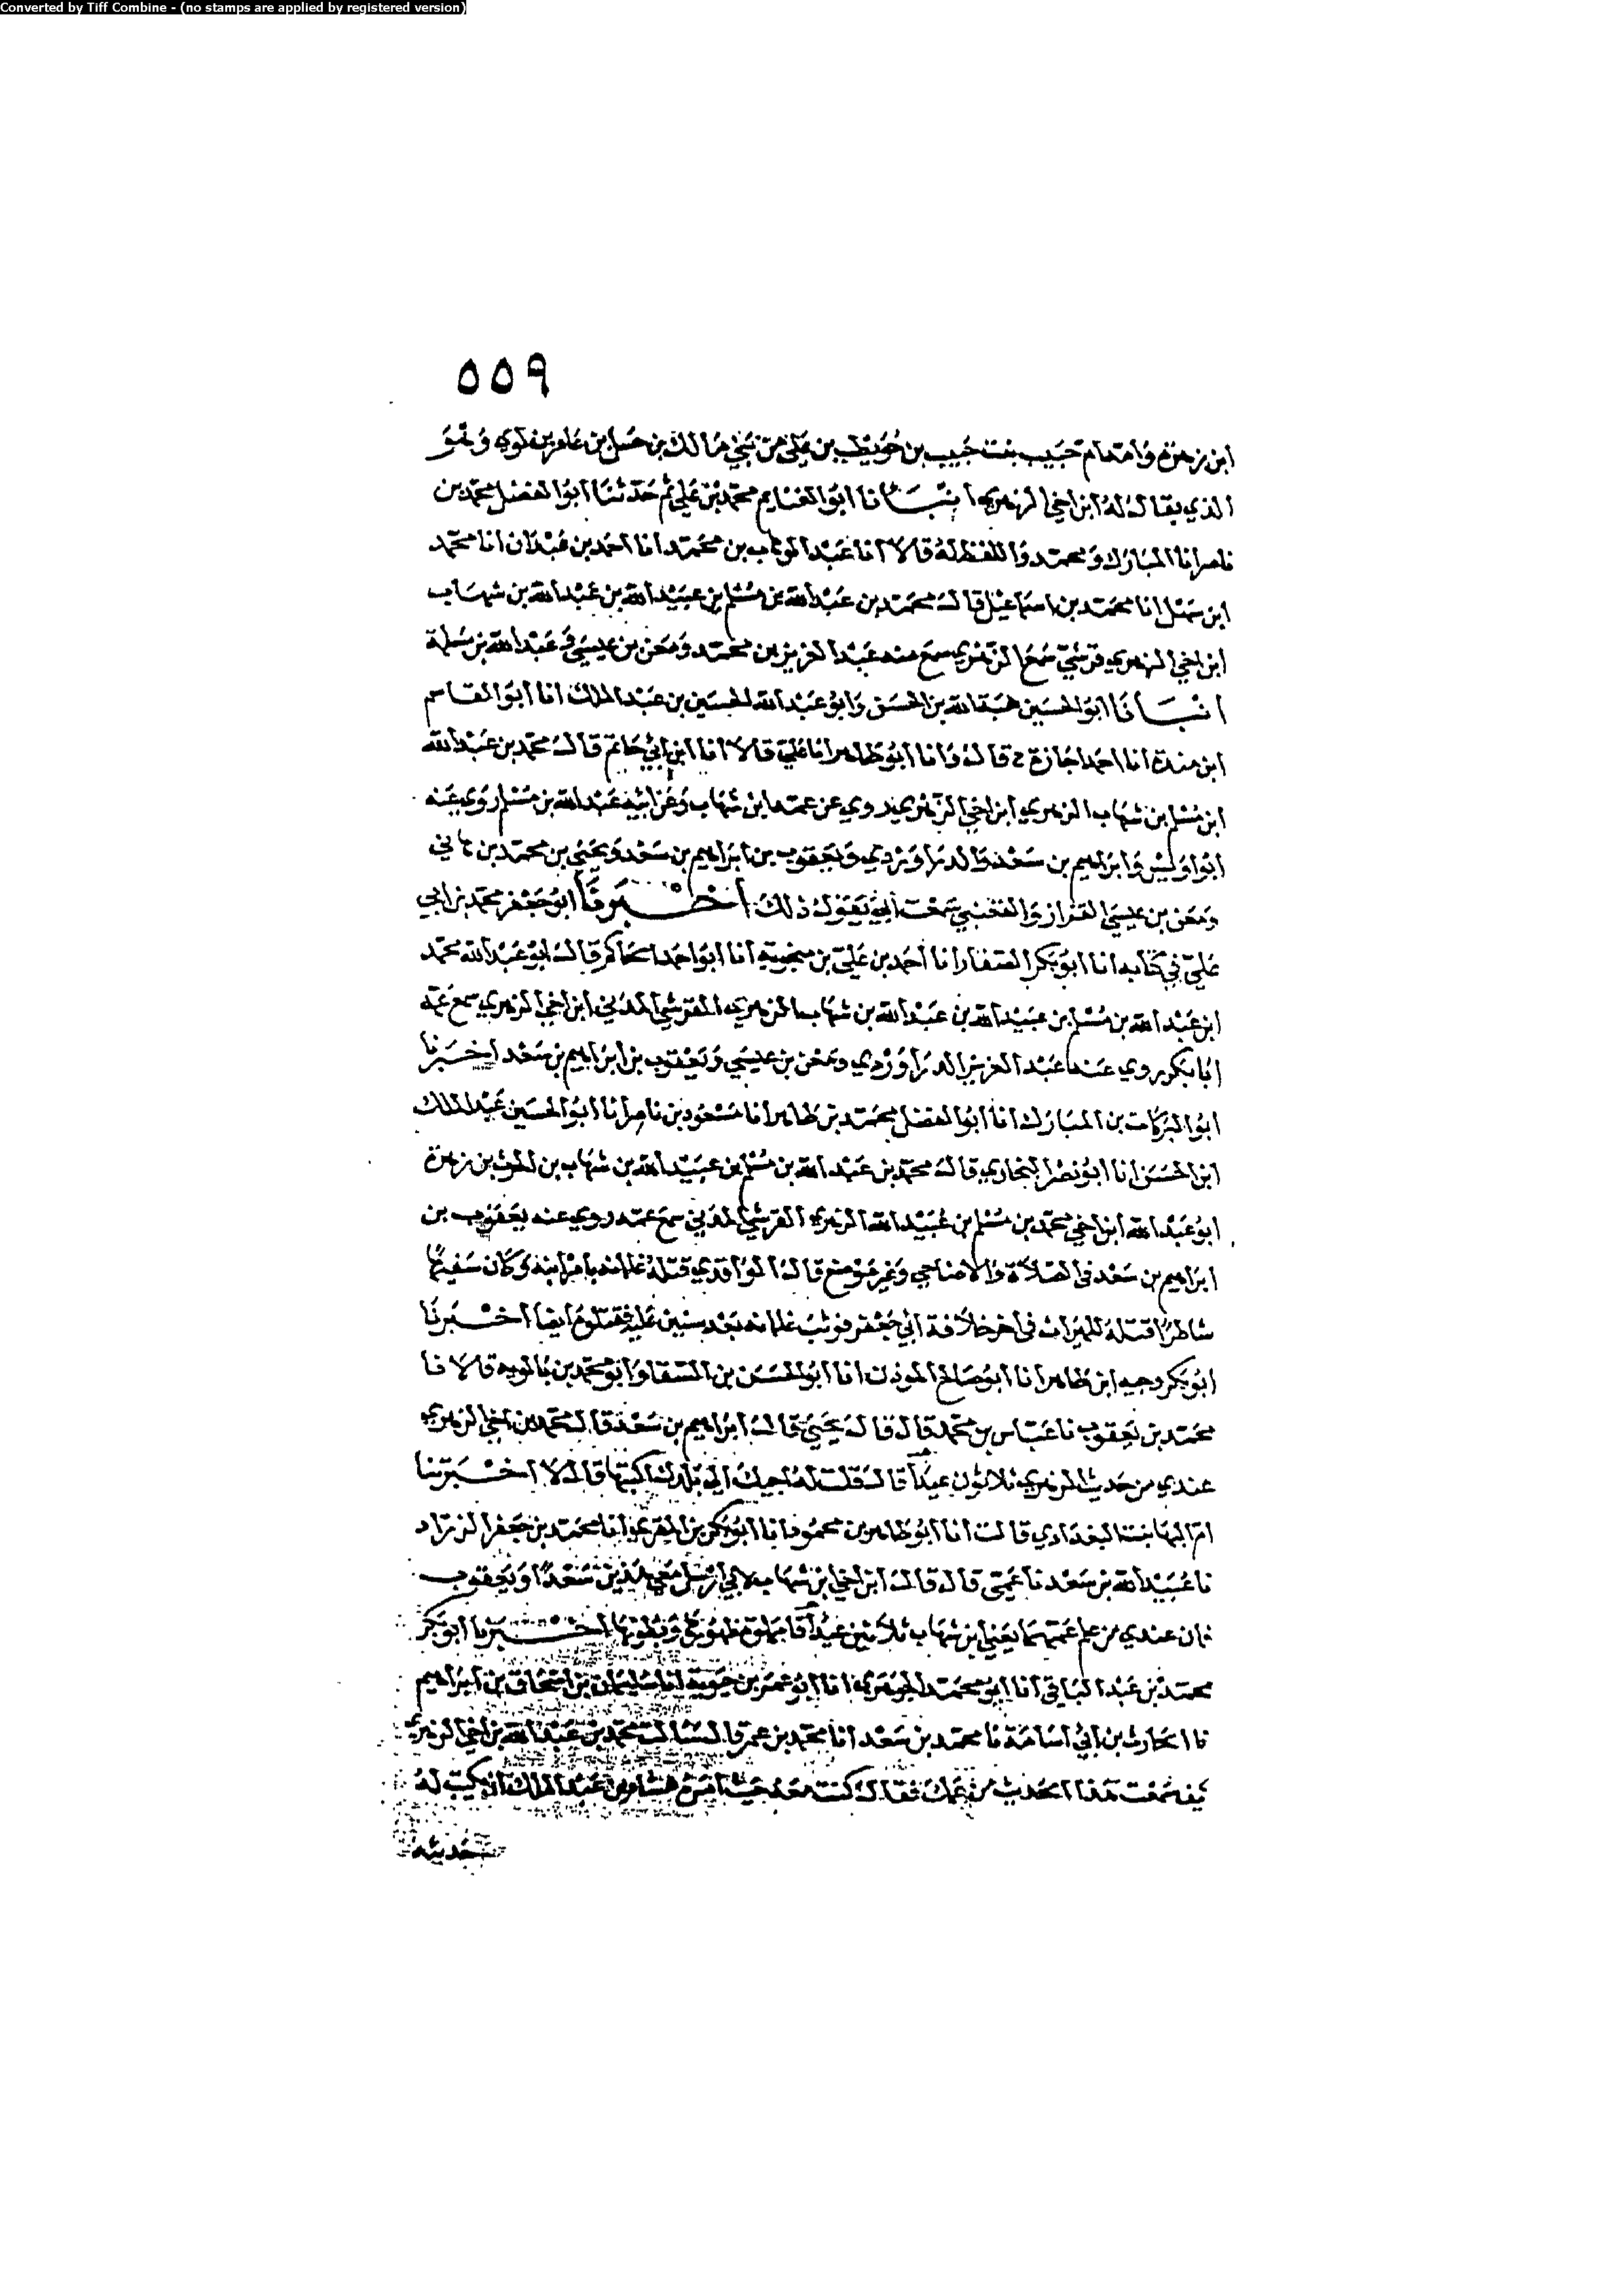 Converted by Tiff Combine - (no stamps are applied by registered version)
٥٥٩
ابن زهرة وامه ام حبيب بنت حبيب بن حويطب بن علي من بني مالك بن حسل بن عامر بن لوي وهو
الذي يقال له ابن اخي الزهري انبانا ابو الغنايم محمد بن علي ثم حدثنا ابو الفضل محمد بن
ناصر انا المبارك ومحمد واللفظ له قالا انا عبد الوهاب بن محمد انا احمد بن عبدان انا محمد
ابن سهل انا محمد بن اسماعيل قال محمد بن عبد الله بن مسلم بن عبيد الله بن عبد الله بن شهاب
ابن اخي الزهري قرشي سمع الزهري سمع منه عبد العزيز بن محمد ومعن بن عيسى وعبد الله بن مسلمة
انبانا ابو الحسين هبة الله بن الحسن وابو عبد الله الحسين بن عبد الملك انا ابو القاسم
ابن مندة انا احمد اجازة ح قال وانا ابو طاهر انا علي قالا انا ابن ابي حاتم قال محمد بن عبد الله
ابن مسلم بن شهاب الزهري ابن اخي الزهري روي عن عمه ابن شهاب وعن ابيه عبد الله بن مسلم روي عنه
ابو اويس وابراهيم بن سعد والدراوردي ويعقوب بن ابراهيم بن سعد ويحيي بن محمد بن هاني
ومعن بن عيسي القزاز والقعنبي سمعت ابي يقول ذلك اخبرنا ابو جعفر محمد بن ابي
علي في كتابه انا ابو بكر الصفار انا احمد بن علي بن منجويه انا ابو احمد الحاكم قال ابو عبد الله محمد
ابن عبد الله بن مسلم بن عبيد الله بن عبد الله بن شهاب الزهري القرشي المدني ابن اخي الزهري سمع عمه
ابا بكر روي عنه عبد العزيز الدراوردي ومعن بن عيسي ويعقوب بن ابراهيم بن سعد اخبرنا
ابو البركات بن المبارك انا ابو الفضل محمد بن طاهر انا مسعود بن ناصر انا ابو الحسين عبد الملك
ابن الحسن انا ابو نصر البخاري قال محمد بن عبد الله بن مسلم بن عبيد الله بن شهاب بن الحرث بن زهرة
ابو عبد الله ابن اخي محمد بن مسلم بن عبيد الله الزهري القرشي المدني سمع عمه روي عنه يعقوب بن
ابراهيم بن سعد في الصلاة والاضاحي وغير موضع قال الواقدي قتله غلمانه بامر ابنه وكان سفيها
شاطرا قتله للميراث في اخر خلافة ابي جعفر فوثب غلمانه بعد سنين عليه فقتلوه ايضا اخبرنا
ابو بكر وجيه ابن طاهر انا ابو صالح الموذن انا ابو الحسن بن السقا وابو محمد بن بالويه قالا نا
محمد بن يعقوب نا عباس بن محمد قال قال يحيي قال ابراهيم بن سعد قال محمد بن اخي الزهري
عندي من حديث الزهري ثلاثون عيدا قال قلت له اجيك الي بلدك اكتبها قال لا اخبرتنا
ام البها بنت البغدادي قالت انا ابو طاهر بن محمود انا ابو بكر بن المقري انا محمد بن جعفر الزراد
نا عبيد الله بن سعد نا عمي قال قال ابن اخي ابن شهاب لابي ارسل معي هذين سعدا ويعقوب
فان عندي من علم عمهما يعني ابن شهاب ثلاثين عيدا اخبرنا ابو بكر
محمد بن عبد الباقي انا ابو محمد الجوهري انا ابو عمر بن حيوية انا سليمان بن اسحاق بن ابراهيم
نا الحارث بن ابي اسامة نا محمد بن سعد انا محمد بن عمر قال سالت محمد بن عبد الله بن اخي الزهري
كيف سمعت هذا الحديث من عمك فقال كنت معه حيث امر هشام بن عبد الملك ان يكتب له
حديثه